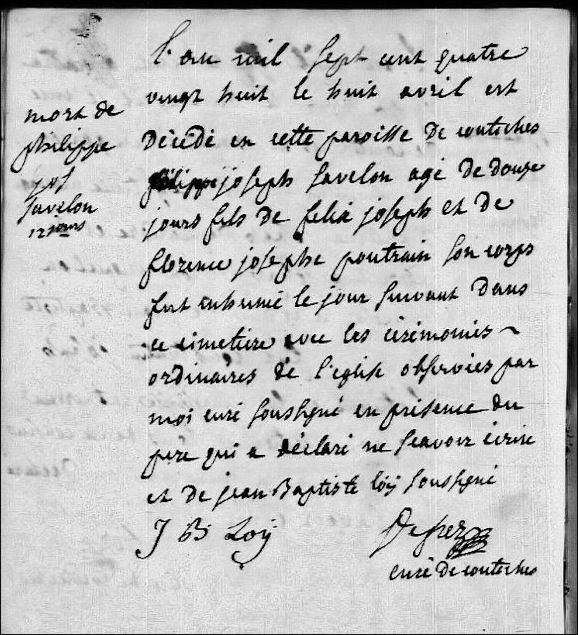 L'an mil sept cent quatre
vingt huit le huit avril est
décédé en cette paroisse de coutiches
philippe joseph Savelon agé de douze
jours fils de felix joseph et de
florence josephe poutrain son corps
fut enhumé le jour suivant dans
ce cimetiere avec les cérémonies ~
ordinaires de l'eglise observées par
moi curé soussigné en présence du
pere qui a déclaré ne scavoir écrire
et de jean Baptiste Loÿ soussigné
J B Loÿ
curé De coutiches
mort de
philippe
jos
Savelon
12 jours